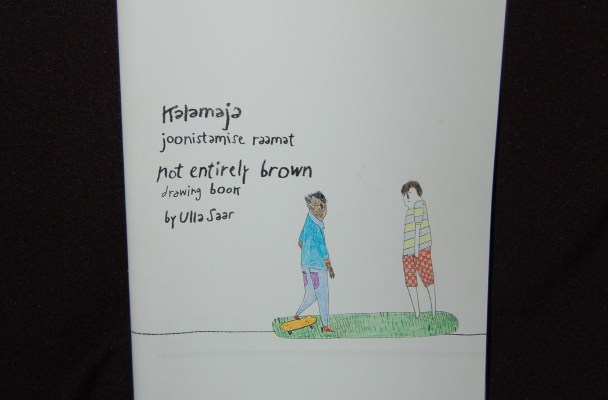 Kalamaja
joonistamise raamat
not entirely brown
drawing book
by Ulla Saar